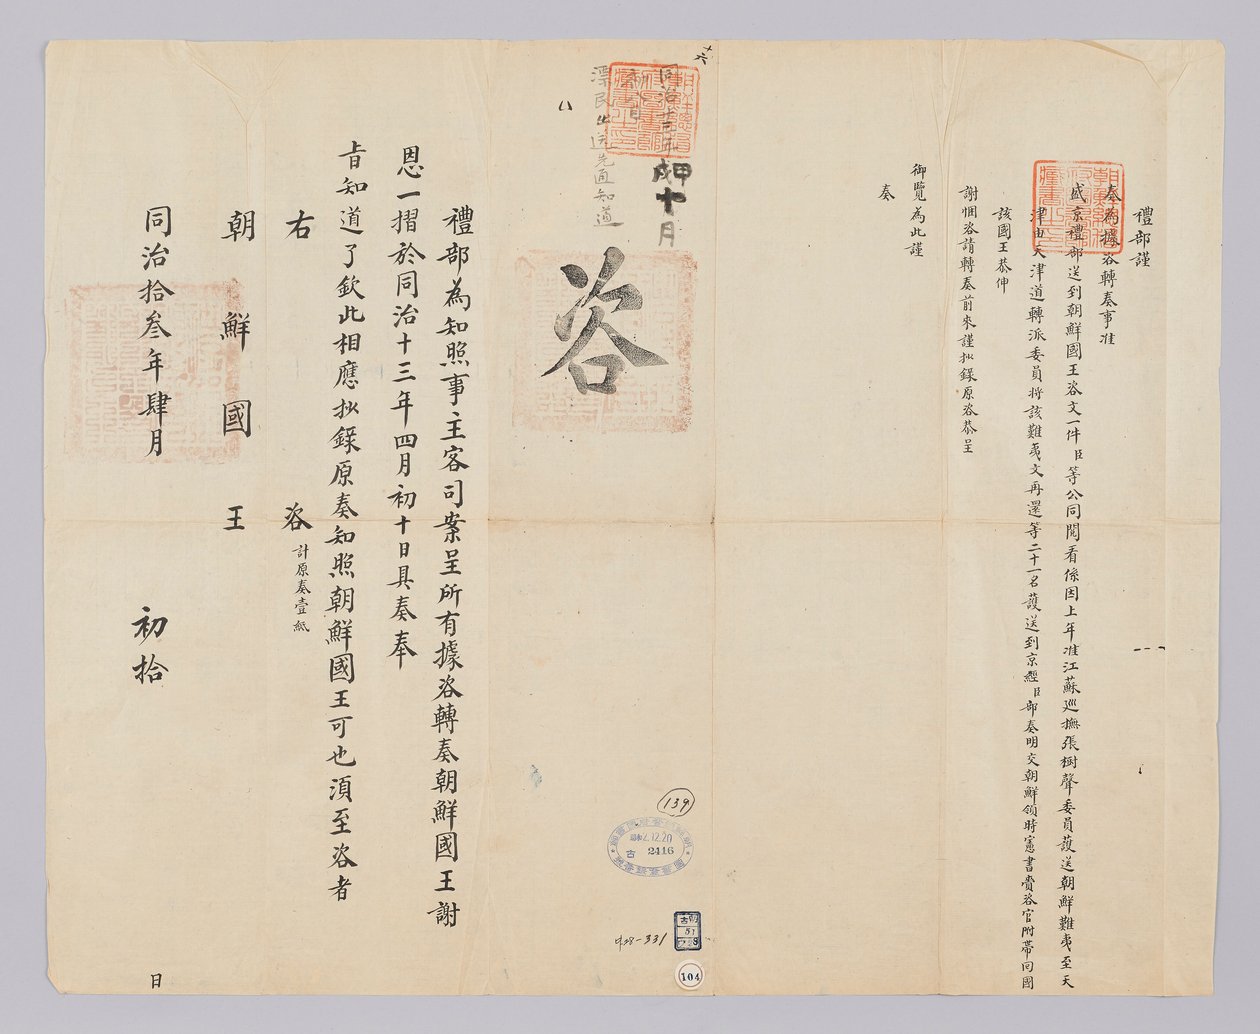 禮部謹
奏為據咨轉奏事准
盛京禮部送到朝鮮國王咨文一件臣等公同閱看係因上年准江蘇巡撫張樹聲委員護送朝鮮難夷至天
津由天津道轉派委員將該難夷文再還等二十一名護送到京經臣部奏明交朝鮮領時憲書賫咨官附帶回國
該國王恭伸
謝悃咨請轉奏前來謹抄錄原咨恭呈
御覽為此謹
奏
十六
同治十三年
甲戌十月
漂民出送先通知道
咨
禮部為知照事主客司案呈所有據咨轉奏朝鮮國王謝
恩一摺於同治十三年四月初十日具奏奉
旨知道了欽此相應抄錄原奏知照朝鮮國王可也須至咨者
右咨 計原奏壹紙
朝鮮國王
同治拾叁年肆月初拾日
139
12.20
古 2416
朝
古
51
104